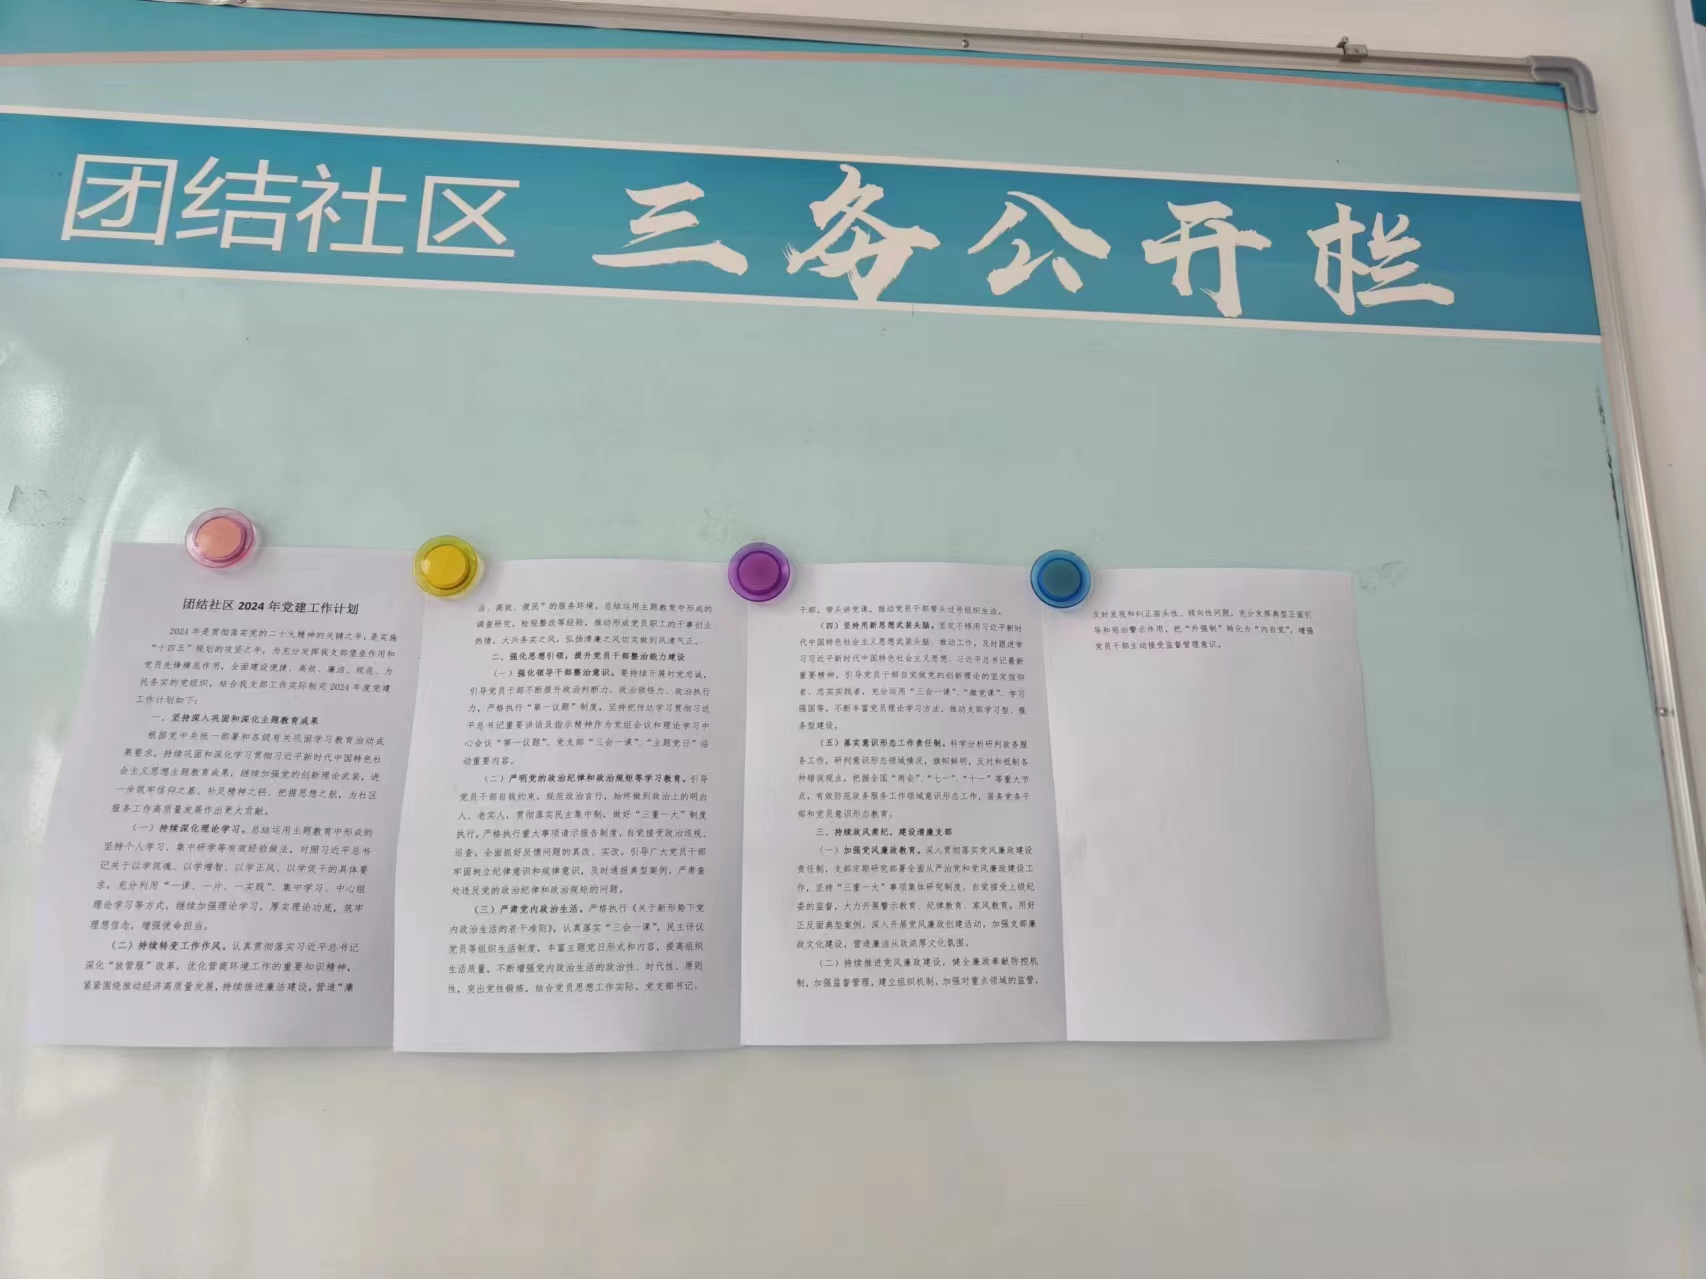 团结社区 三务公开栏
团结社区 2024 年党建工作计划
2024 年是贯彻落实党的二十大精神的关键之年,是实施
“十四五”规划的攻坚之年,为充分发挥我支部堡垒作用和
党员先锋模范作用,全面建设便捷、高效、廉洁、规范、为
民务实的党组织,结合我支部工作实际制定 2024 年度党建
工作计划如下:
一、坚持深入巩固和深化主题教育成果
根据党中央统一部署和各级有关巩固学习教育活动成
果要求,持续巩固和深化学习贯彻习近平新时代中国特色社
会主义思想主题教育成果,继续加强党的创新理论武装,进
一步筑牢信仰之基、补足精神之钙、把握思想之舵,为社区
服务工作高质量发展作出更大贡献。
(一)持续深化理论学习。总结运用主题教育中形成的
坚持个人学习、集中研学等有效经验做法,对照习近平总书
记关于以学铸魂、以学增智、以学正风、以学促干的具体要
求,充分利用“一课、一片、一实践”、集中学习、中心组
理论学习等方式,继续加强理论学习,厚实理论功底,筑牢
理想信念,增强使命担当。
(二)持续转变工作作风。认真贯彻落实习近平总书记
深化“放管服”改革,优化营商环境工作的重要知识精神,
紧紧围绕推动经济高质量发展,持续推进廉洁建设,营造“廉
洁、高效、便民”的服务环境。总结运用主题教育中形成的
调查研究,检视整改等经验,推动形成党员职工的干事创业
热情,大兴务实之风,弘扬清廉之风切实做到风清气正。
二、强化思想引领,提升党员干部整治能力建设
(一)强化领导干部整治意识。要持续开展对党忠诚,
引导党员干部不断提升政治判断力、政治领悟力、政治执行
力,严格执行“第一议题”制度,坚持把传达学习贯彻习近
平总书记重要讲话及指示精神作为党组会议和理论学习中
心会议“第一议题”、党支部“三会一课”、“主题党日”活
动重要内容。
(二)严明党的政治纪律和政治规矩等学习教育。引导
党员干部自我约束,规范政治言行,始终做到政治上的明白
人、老实人,贯彻落实民主集中制,做好“三重一大”制度
执行,严格执行重大事项请示报告制度,自觉接受政治巡视、
巡查。全面抓好反馈问题的真改、实改,引导广大党员干部
牢固树立纪律意识和规律意识,及时通报典型案例,严肃查
处违反党的政治纪律和政治规矩的问题。
(三)严肃党内政治生活。严格执行《关于新形势下党
内政治生活的若干准则》,认真落实“三会一课”,民主评议
党员等组织生活制度,丰富主题党日形式和内容,提高组织
生活质量,不断增强党内政治生活的政治性、时代性、原则
性,突出党性锻炼,结合党员思想工作实际,党支部书记、
干部、带头讲党课,推动党员干部带头过号组织生活。
(四)坚持用新思想武装头脑。坚定不移用习近平新时
代中国特色社会主义思想武装头脑、推动工作,及时跟进学
习习近平新时代中国特色社会主义思想、习近平总书记最新
重要精神,引导党员自觉做党的创新理论的坚定信仰
者、忠实实践者,充分运用“三会一课”、“微党课”、学习
强国等,不断丰富党员理论学习方法,推动支部学习型、服
务型建设。
(五)落实意识形态工作责任制。科学分析研判政务服
务工作,研判意识形态领域情况,旗帜鲜明,反对和抵制各
种错误观点,把握全国“两会”、“七一”、“十一”等重大节
点,有效防范政务服务工作领域意识形态工作,居务党务干
部和党员意识形态教育。
三、持续政风肃纪,建设清廉支部
(一)加强党风廉政教育。深入贯彻落实党风廉政建设
责任制,支部定期研究部署全面从严治党和党风廉政建设工
作,坚持“三重一大”事项集体研究制度,自觉接受上级纪
委的监督,大力开展警示教育、纪律教育、家风教育,用好
正反面典型案例,深入开展党风廉政创建活动,加强支部廉
政文化建设,营造廉洁从政浓厚文化氛围。
(二)持续推进党风廉政建设,健全廉政奉献防控机
制,加强监督管理,建立组织机制,加强对重点领域的监管,
及时发现和纠正苗头性、倾向性问题,充分发挥典型正面引
导和惩治警示作用,把“外强制”转化为“内自觉”,增强
党员干部主动接受监督管理意识。